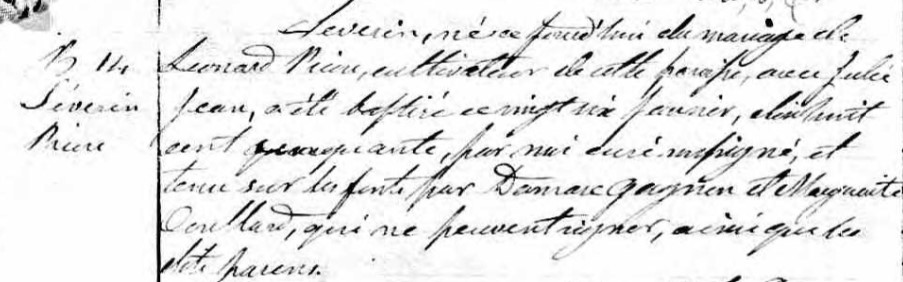 Severin, né ce jourd'hui du mariage de
B 14 Leonard Picre, cultivateur de cette paroisse, avec Julie
Séverin Jean, a été baptisé ce vingt six Janvier, dix huit
Picre cent quinquante, par moi curé soussigné, et
tenu sur les fonts par Damase Gagnon et Marguerite
Couillard, qui ne peuvent signer, ainsi que les
dits parens.